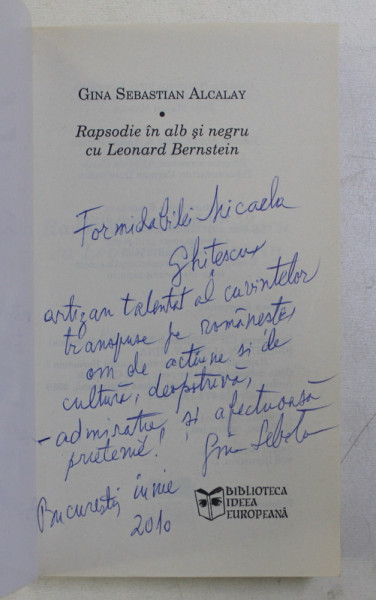 GINA SEBASTIAN ALCALAY
•
Rapsodie în alb şi negru
cu Leonard Bernstein
Formidabilei Micaela
Ghitescu,
artizan talentat al cuvintelor
transpuse pe românește,
om de acțiune si de
cultură, deopotrivă,
- admirație și afectuoasă
prietenie!
București iunie
2010
BIBLIOTECA
IDEEA
EUROPEANĂ